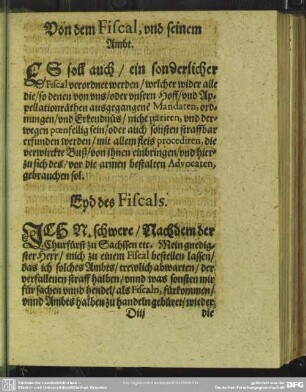 Von dem Fiscal, vnd seinem
Ambt.
ES soll auch / ein sonderlicher
Fiscal verordnet werden / welcher wider alle
die / so denen von vns / oder vnsern Hoff / vnd Ap-
pellationräthen ausgegangenē Mandaten, ord-
nungen / vnd Erkendnüs / nicht pariren, vnd der-
wegen pœnfellig sein / oder auch sonsten straffbar
erfunden werden / mit allem fleis procediren, die
verwirckte Buß / von ihnen einbringen / vnd hier-
zu sich des / vor die armen bestalten Advocaten,
gebrauchen sol.
Eyd des Fiscals.
ICH N. schwere / Nachdem der
Churfürst zu Sachssen etc. Mein gnedig-
ster Herr / mich zu einem Fiscal bestellen lassen /
das ich solches Ambtes / trewlich abwarten / der
verfallenen straff halben / vnnd was sonsten mir
für sachen vnnd hendel / als Fiscaln, fürkommen /
vnnd Ambtes halben zu handeln gebüret / wieder
D iij die